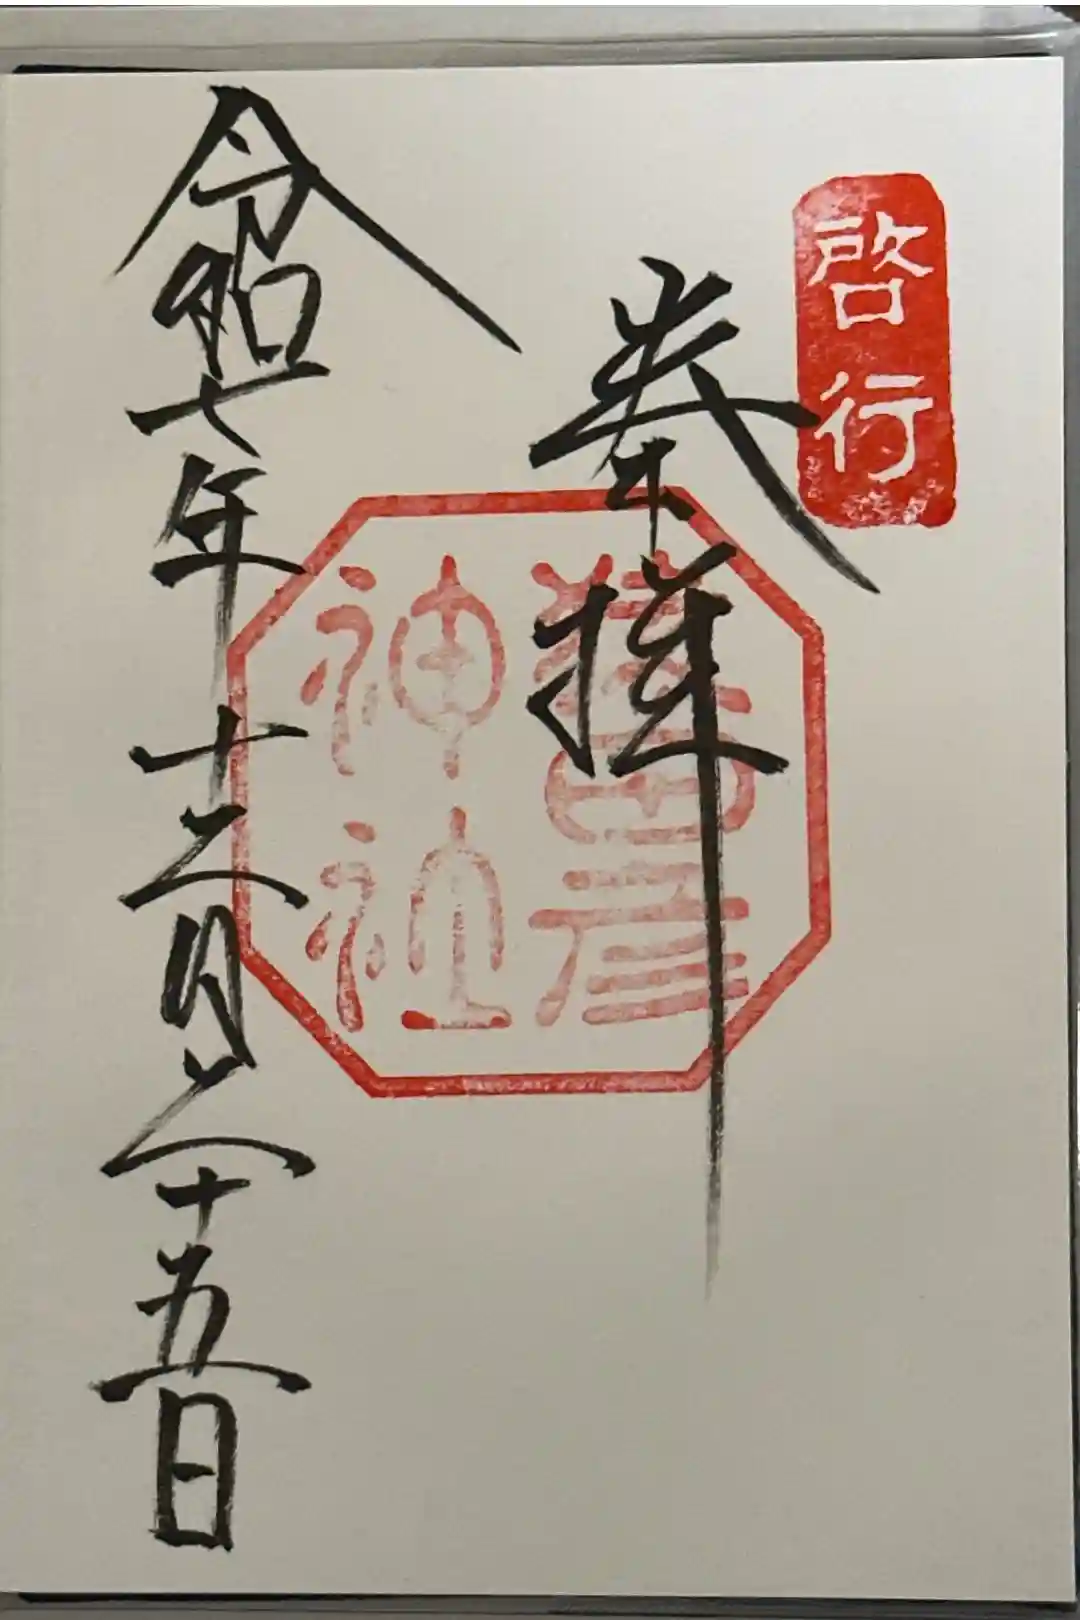 啓行
奉拝
猿田彦
神社
令和七年十二月二十五日